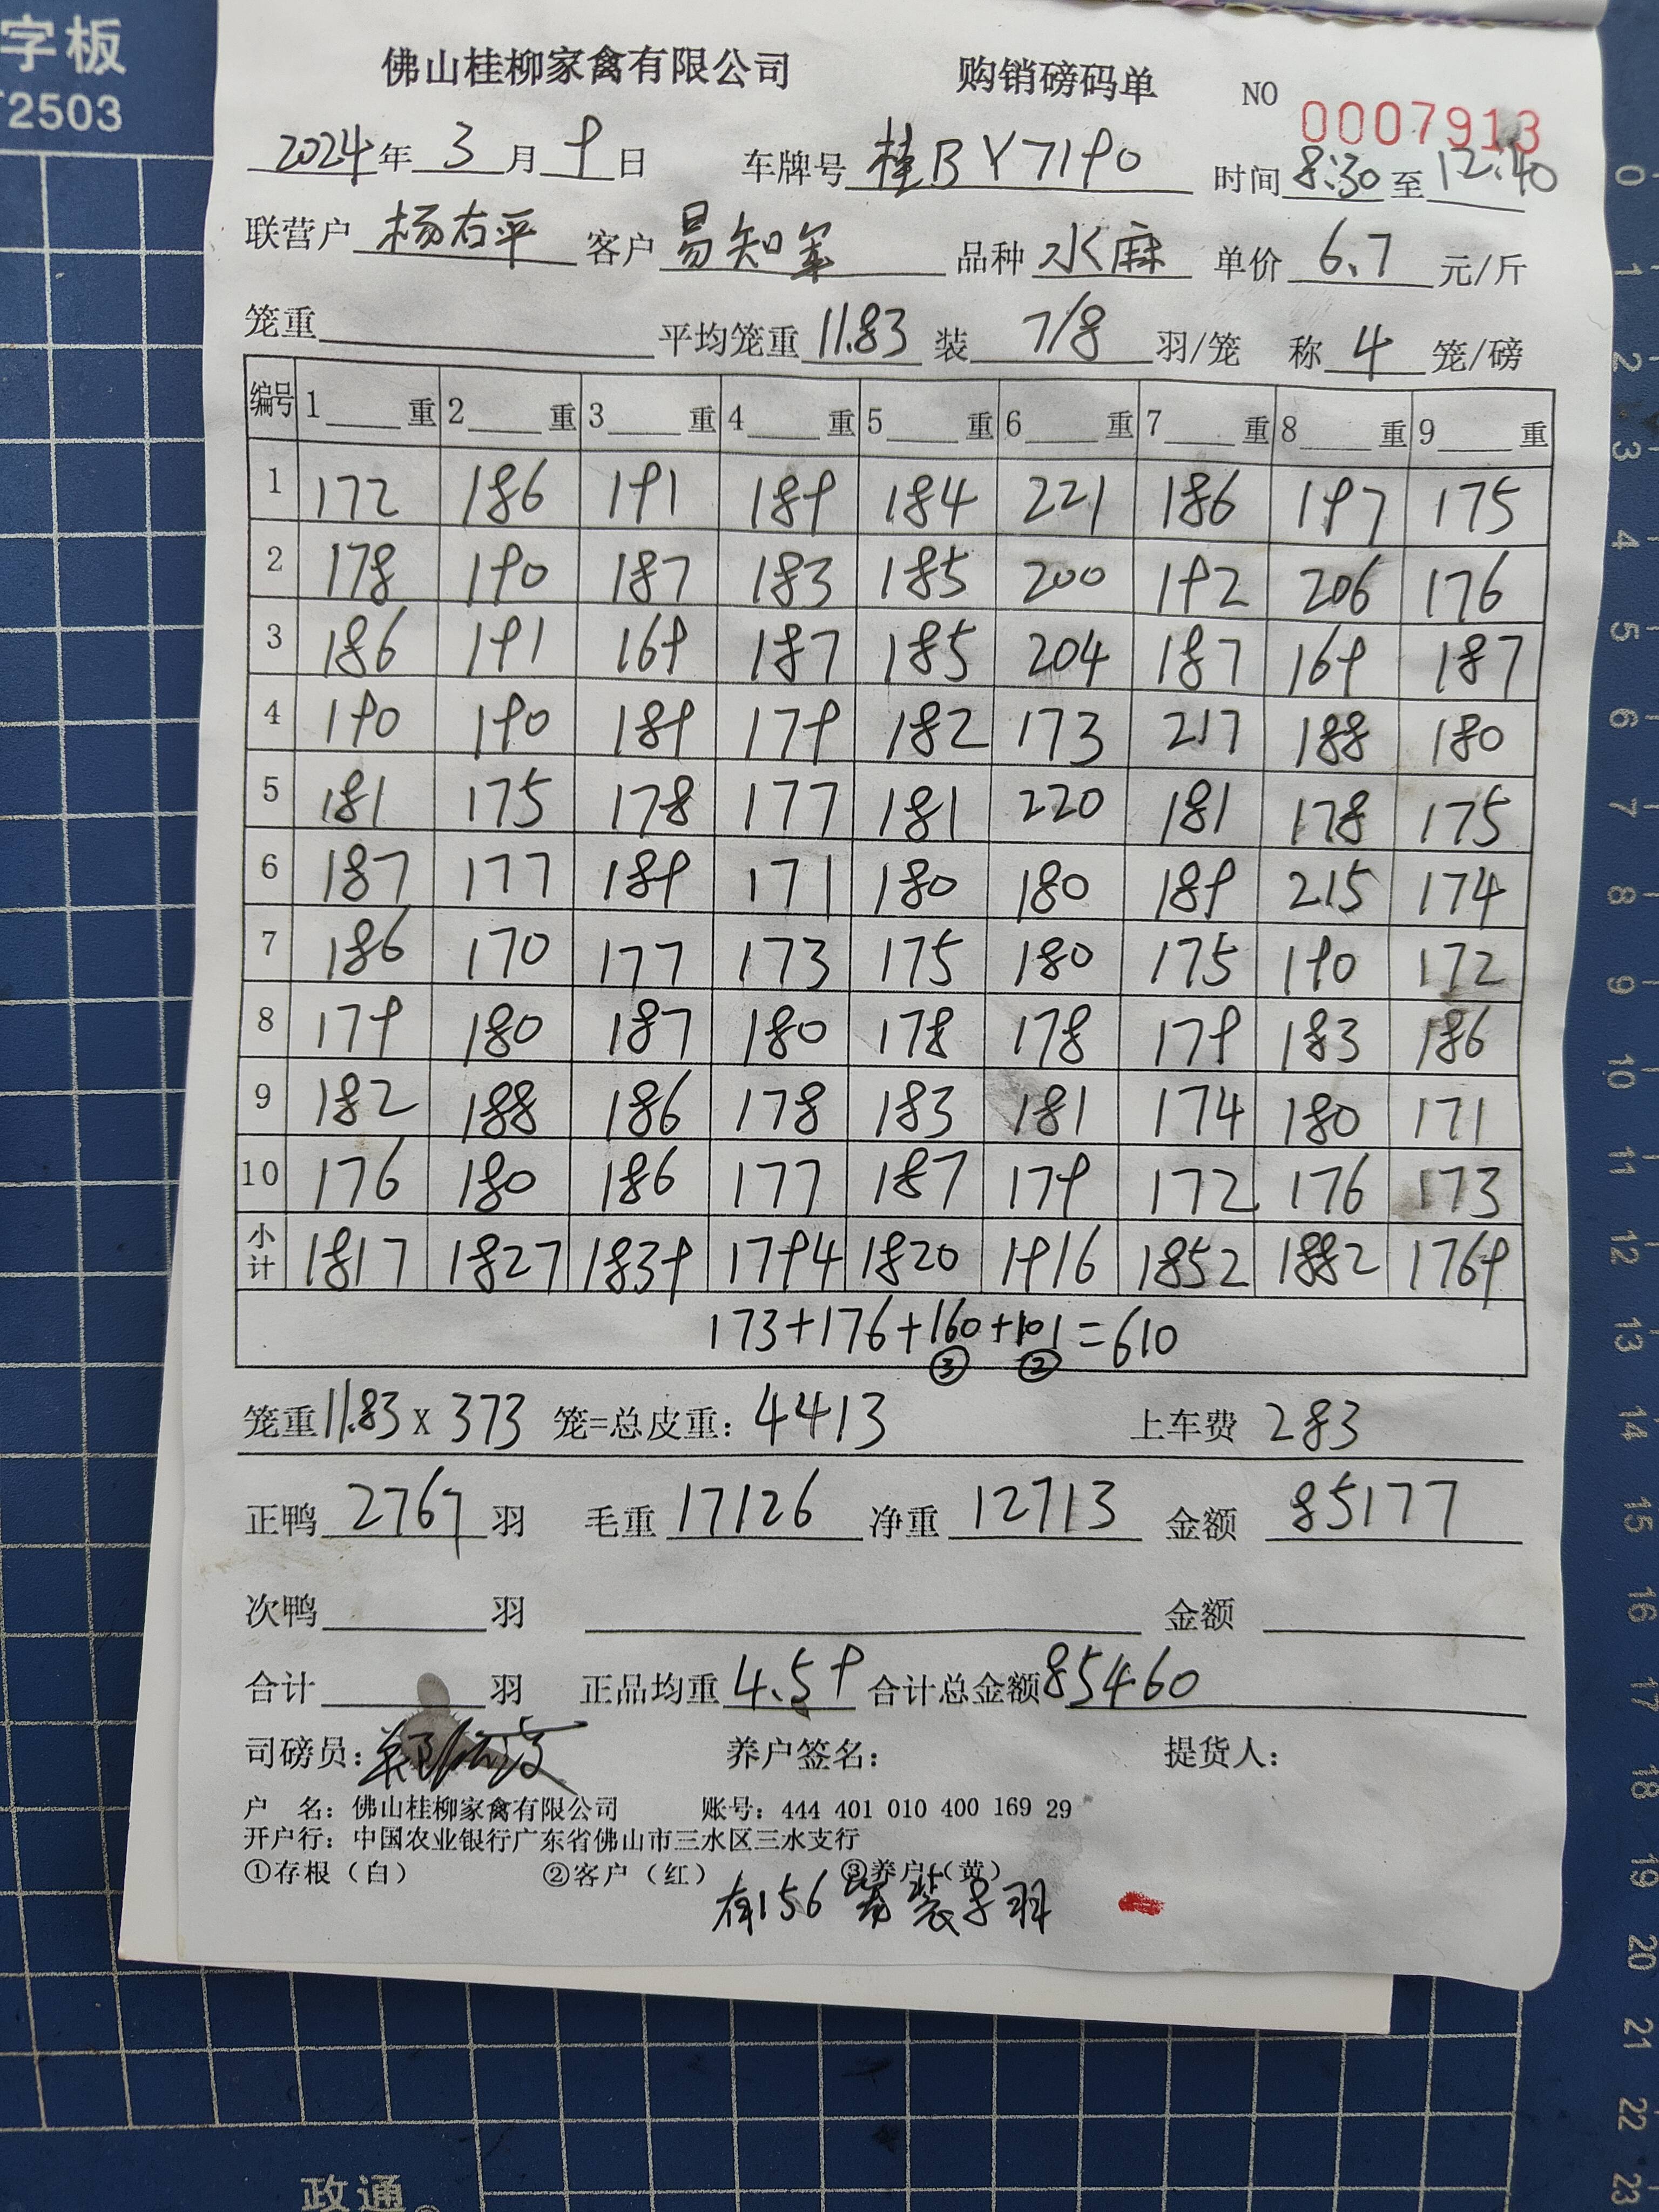 字板
T2503
佛山桂柳家禽有限公司 购销磅码单 NO 0007913
2024年 3月 9日 车牌号 桂BY7190 时间 8:30 至 12:40
联营户 杨右平 客户 易知军 品种 水麻 单价 6.7 元/斤
笼重 平均笼重 11.83 装 7/8 羽/笼 称 4 笼/磅
编号 1 重 2 重 3 重 4 重 5 重 6 重 7 重 8 重 9 重
1 172 186 191 189 184 221 186 197 175
2 178 190 187 183 185 200 192 206 176
3 186 191 169 187 185 204 187 169 187
4 190 190 189 179 182 173 217 188 180
5 181 175 178 177 181 220 181 178 175
6 187 177 189 171 180 180 189 215 174
7 186 170 177 173 175 180 175 190 172
8 179 180 187 180 178 178 179 183 186
9 182 188 186 178 183 181 174 180 171
10 176 180 186 177 187 179 172 176 173
小计 1817 1827 1839 1794 1820 1916 1852 1882 1769
173+176+160+101=610
③ ②
笼重 11.83 X 373 笼=总皮重: 4413 上车费 283
正鸭 2767 羽 毛重 17126 净重 12713 金额 85177
次鸭 羽 金额
合计 羽 正品均重 4.59 合计总金额 85460
司磅员: 养户签名: 提货人:
户 名: 佛山桂柳家禽有限公司 账号: 444 401 010 400 169 29
开户行: 中国农业银行广东省佛山市三水区三水支行
①存根(白) ②客户(红) ③养户(黄)
有156笼装8羽
政通
0 1 2 3 4 5 6 7 8 9 10 11 12 13 14 15 16 17 18 19 20 21 22 23